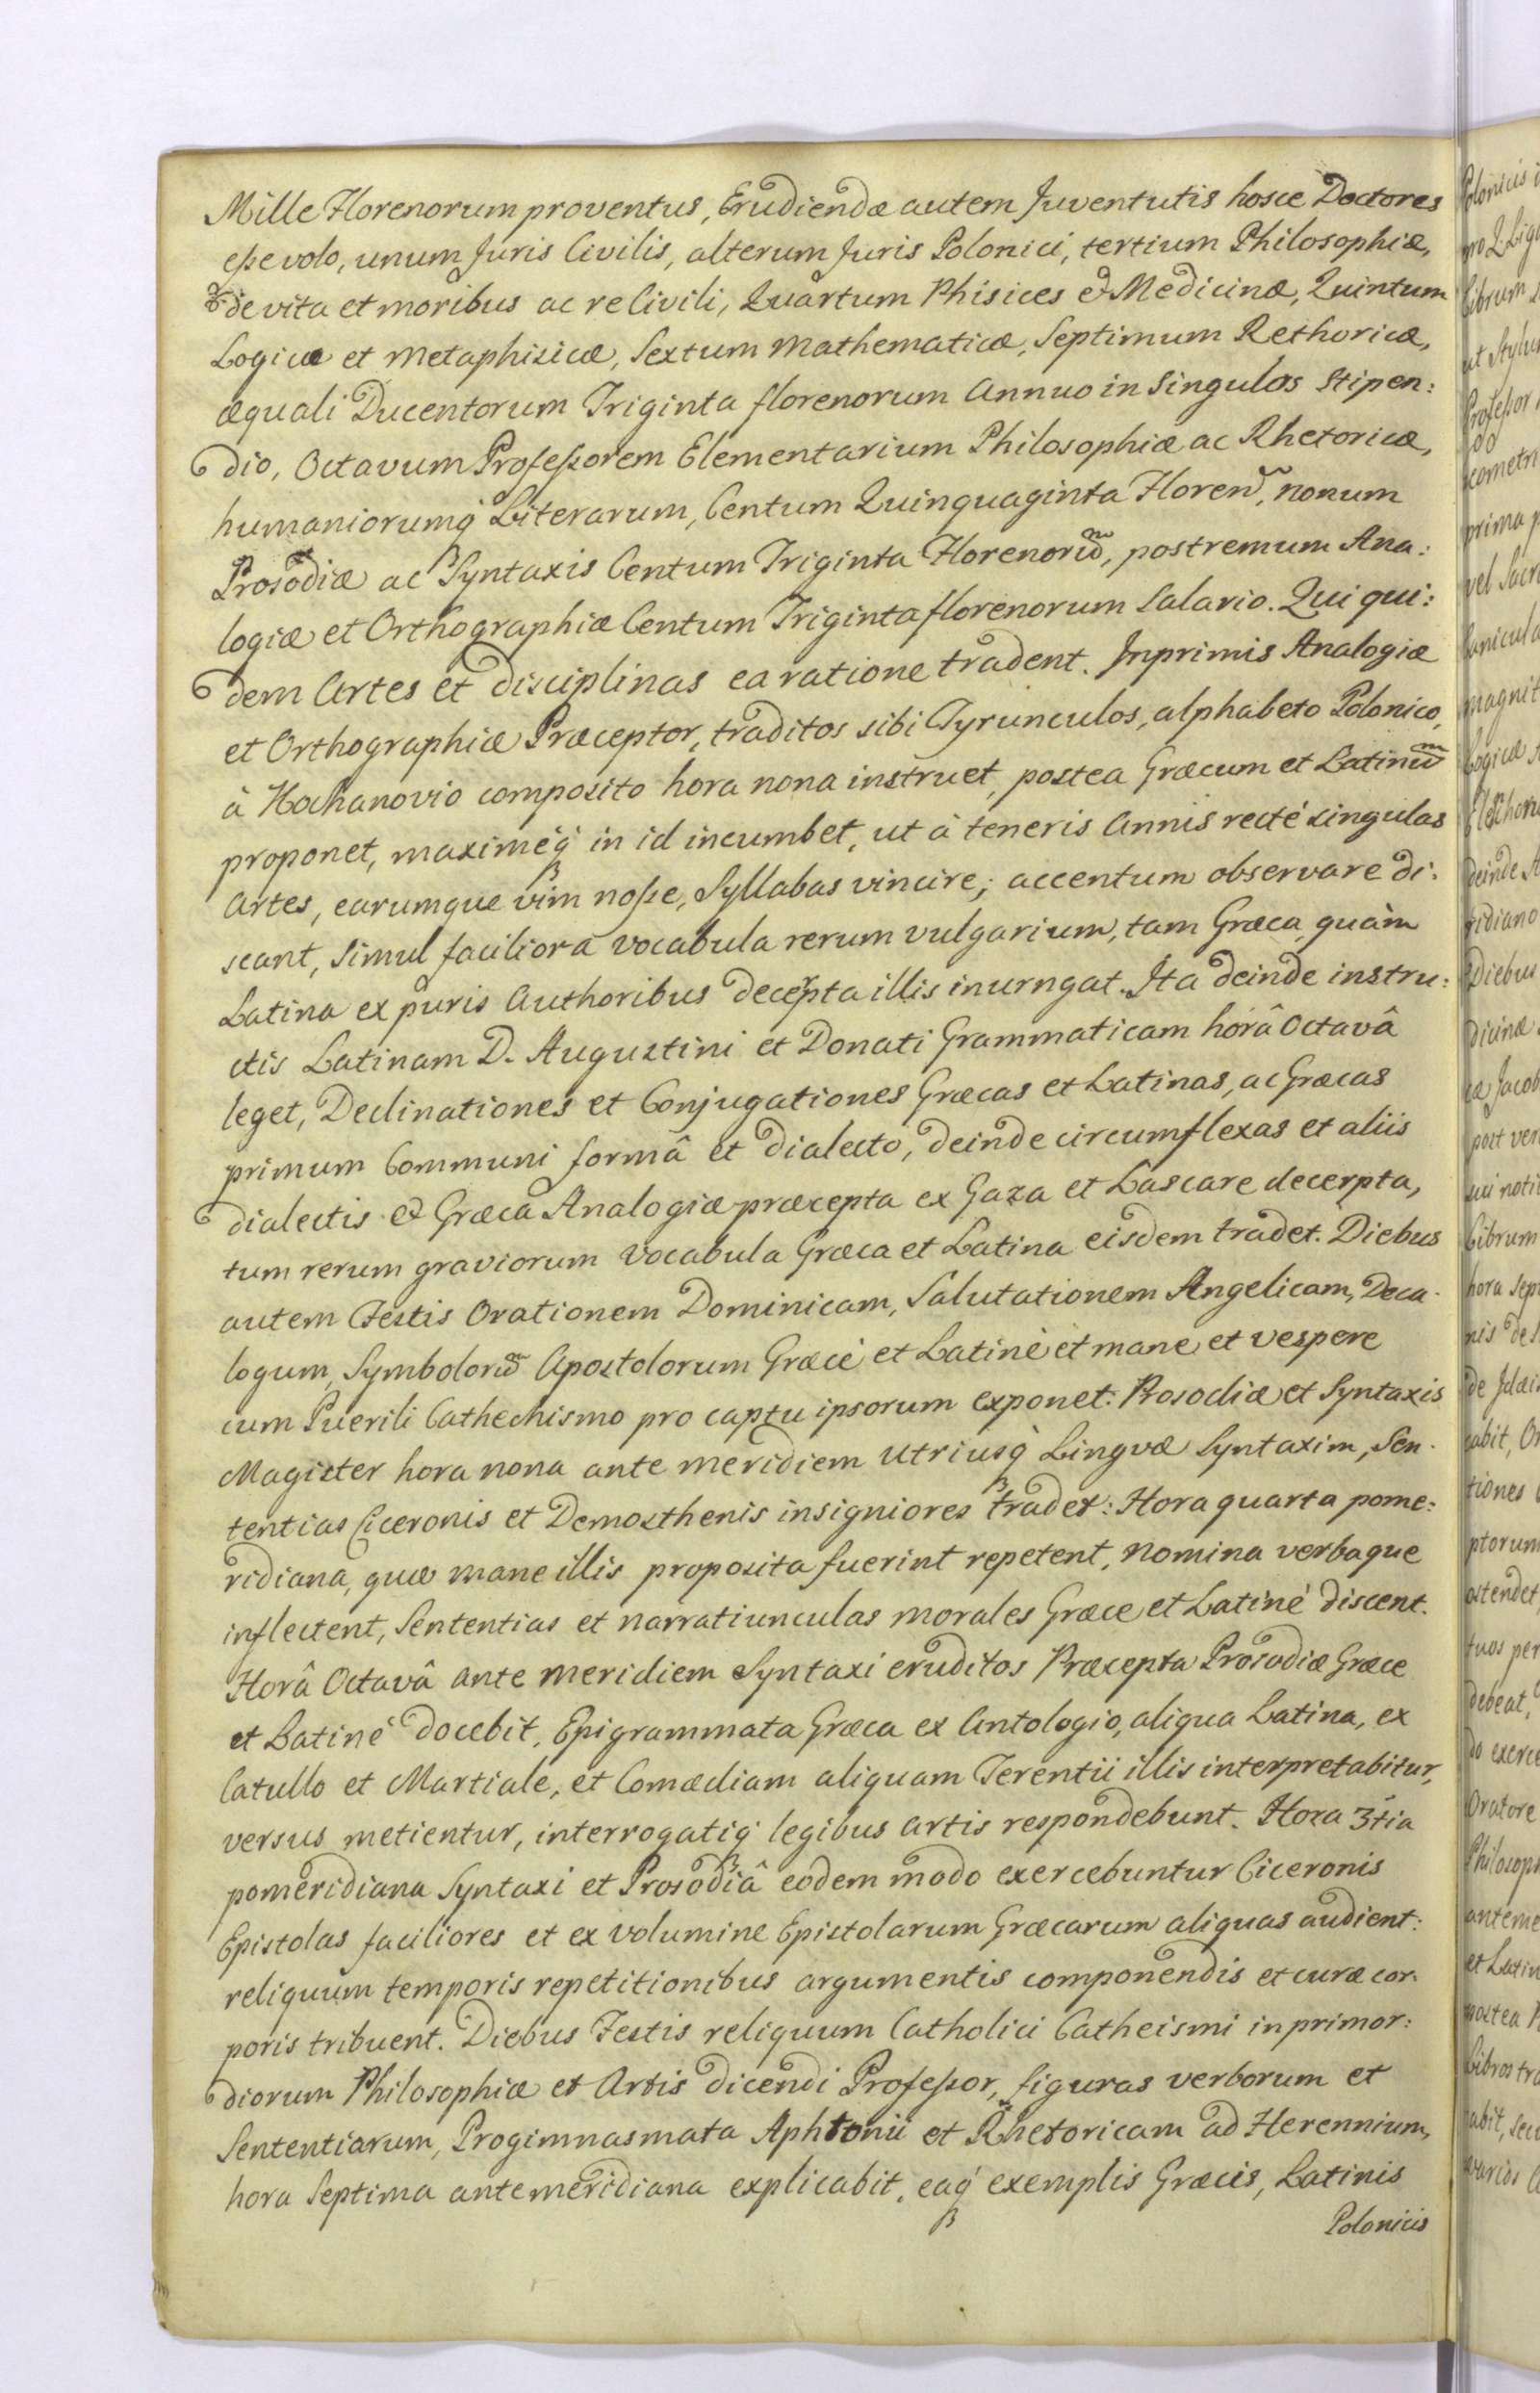 Mille Florenorum proventus, Erudiendæ autem Juventutis hosce Doctores
eße volo, unum Juris Civilis, alterum Juris Polonici, tertium Philosophiæ,
de vita et moribus ac re Civili, Quartum Phisices et Medicinæ, Quintum
Logicæ et Metaphisicæ, Sextum Mathematicæ, Septimum Rethoricæ,
æquali Ducentorum Triginta florenorum Annuo in Singulos Stipen:
dio, Octavum Profeßorem Elementarium Philosophiæ ac Rhetoricæ,
humaniorumq́ Literarum, Centum Quinquaginta Floren̄, nonum
Prosodiæ ac Syntaxis Centum Triginta Florenorū, postremum Ana:
logiæ et Orthographiæ Centum Triginta florenorum Salario. Qui qui:
dem Artes et disciplinas ea ratione tradent. Inprimis Analogiæ
et Orthographiæ Præceptor, traditos sibi Tyrunculos, alphabeto Polonico,
à Kochanovio composito hora nona instruet, postea Græcum et Latinū
proponet, maximéq́ in id incumbet, ut à teneris Annis recté singulas
Artes, earumque vim noße, Syllabas vincire; accentum observare di:
scant, Simul faciliora vocabula rerum vulgarium, tam Græca quàm
Latina ex puris Authoribus decerpta illis inurngat. Ita deinde instru:
ctis Latinam D. Augustini et Donati Grammaticam horâ Octavâ
leget, Declinationes et Conjugationes Græcas et Latinas, ac Græcas
primum Communi formâ et dialecto, deinde circumflexas et aliis
dialectis et Græca Analogiæ præcepta ex Gaza et Lascare decerpta,
tum rerum graviorum vocabula Græca et Latina eisdem tradet. Diebus
autem Festis Orationem Dominicam, Salutationem Angelicam, Deca:
logum, Symbolorū Apostolorum Græcè et Latinè et mane et vespere
cum Puerili Cathechismo pro captu ipsorum exponet: Prosodiæ et Syntaxis
Magister hora nona ante meridiem utriusq́ Lingvæ Syntaxim, Sen:
tentias Ciceronis et Demosthenis insigniores tradet: Hora quarta pome:
ridiana, quæ mane illis proposita fuerint repetent, nomina verbaque
inflectent, Sententias et narratiunculas morales Græce et Latiné discent.
Horâ Octavâ ante meridiem Syntaxi eruditos Præcepta Prosodiæ Græce
et Latiné docebit, Epigrammata Græca ex Antologio, aliqua Latina, ex
Catullo et Martiale, et Comædiam aliquam Terentii illis interpretabitur,
versus metientur, interrogatiq́ legibus artis respondebunt. Hora 3tia
pomeridiana Syntaxi et Prosodiâ eodem modo exercebuntur Ciceronis
Epistolas faciliores et ex volumine Epistolarum Græcarum aliquas audient:
reliquum temporis repetitionibus argumentis componendis et curæ cor:
poris tribuent. Diebus Festis reliquum Catholici Catheismi in primor:
diorum Philosophiæ et Artis dicendi Profeßor, figuras verborum et
Sententiarum, Progimnasmata Aphtonii et Rhetoricam ad Herennium,
hora Septima antemeridiana explicabit, eaq́ exemplis Græcis, Latinis
Polonicis